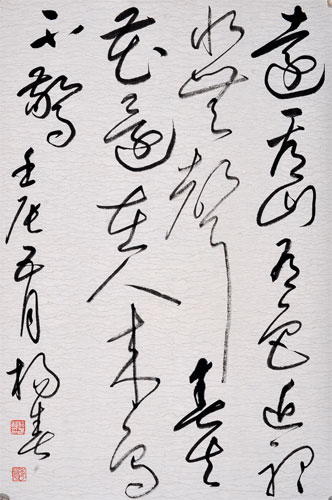 遠看山有色近聽
水無聲春去
花還在人來鳥
不驚壬辰五月楊春